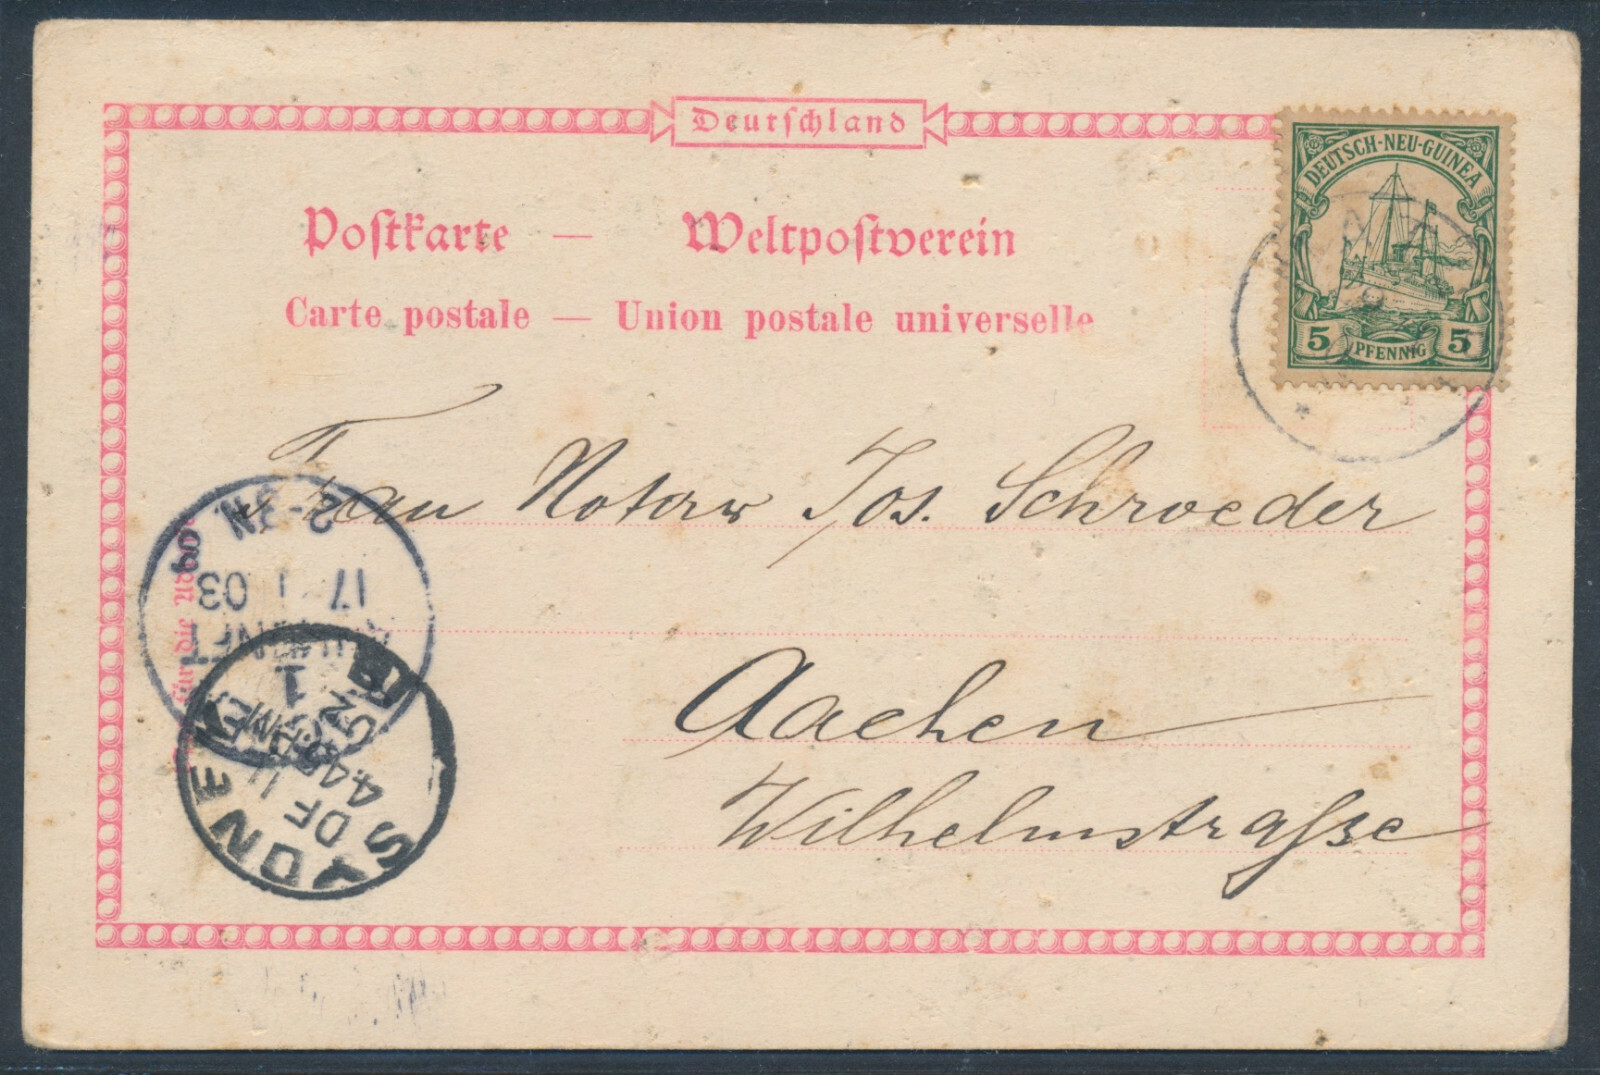 Deutschland
DEUTSCH-NEU-GUINEA
5 PFENNIG 5
Postkarte — Weltpostverein
Carte postale — Union postale universelle
Frau Notar Jos. Schroeder
Aachen
Wilhelmstrasse
Für die
2-3N
17 1 03
1
SYDNEY
DE
4.45